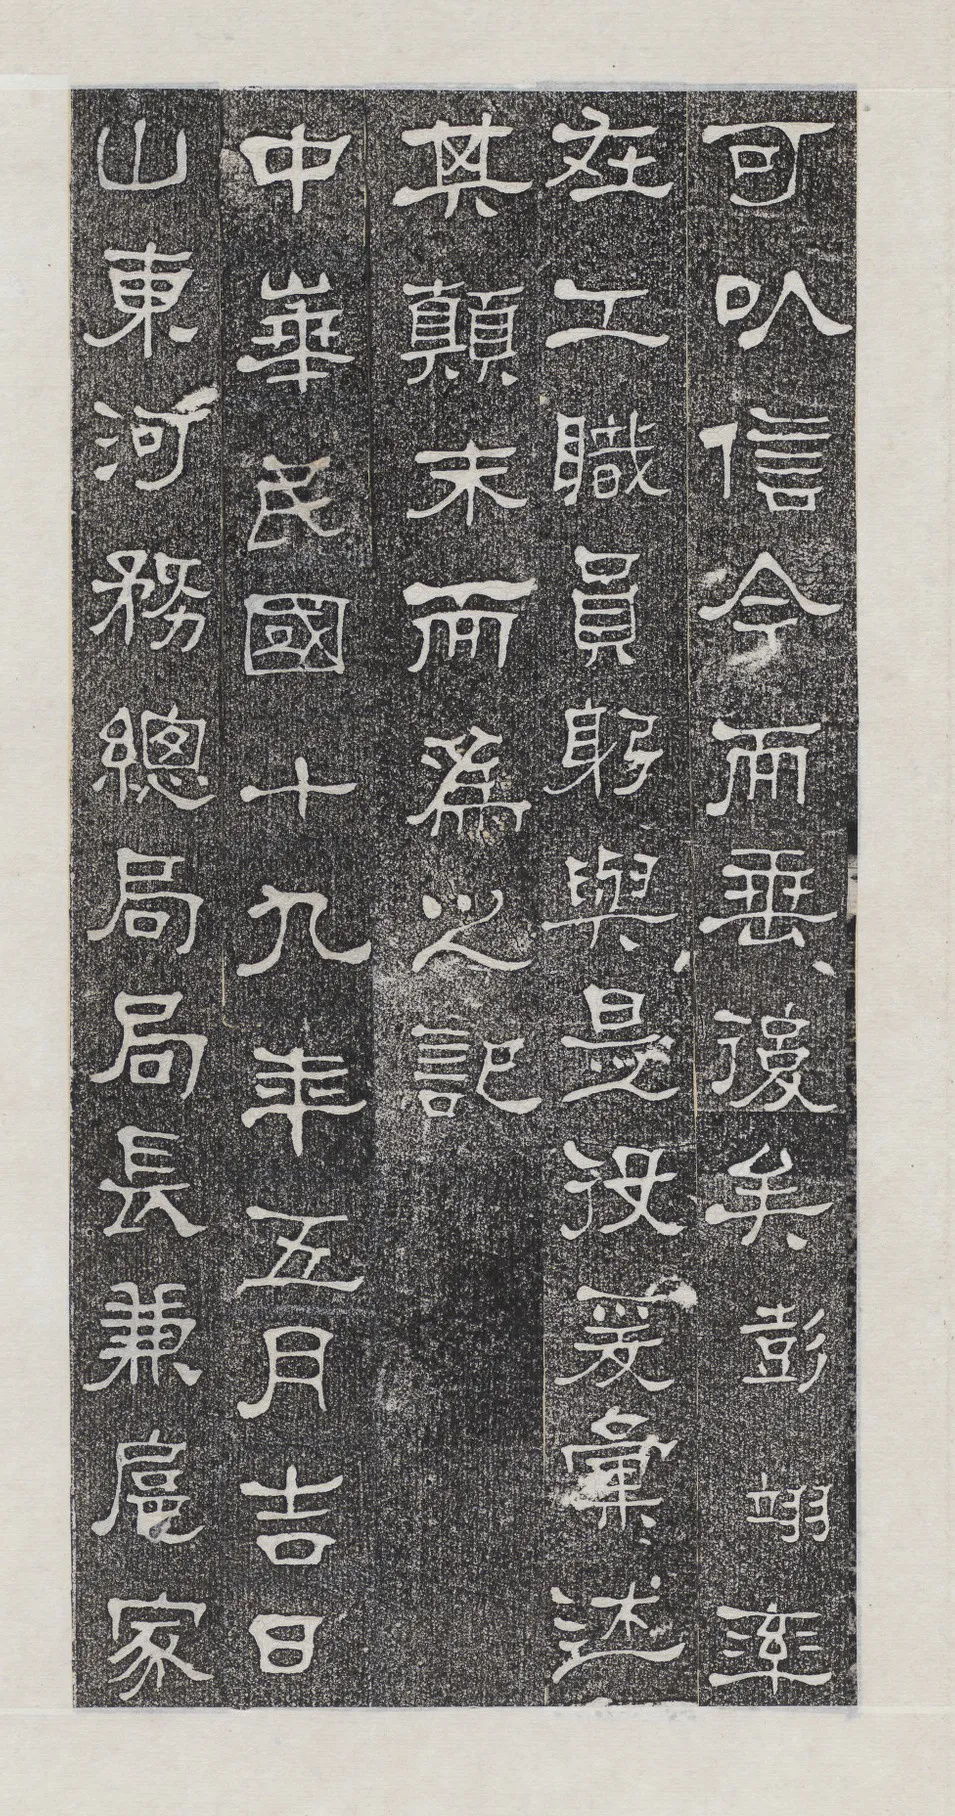 可以信今而垂後矣彭翊率
在工職員躬與是役爰彙述
其顛末而為之記
中華民國十九年五月吉日
山東河務總局局長兼扈家